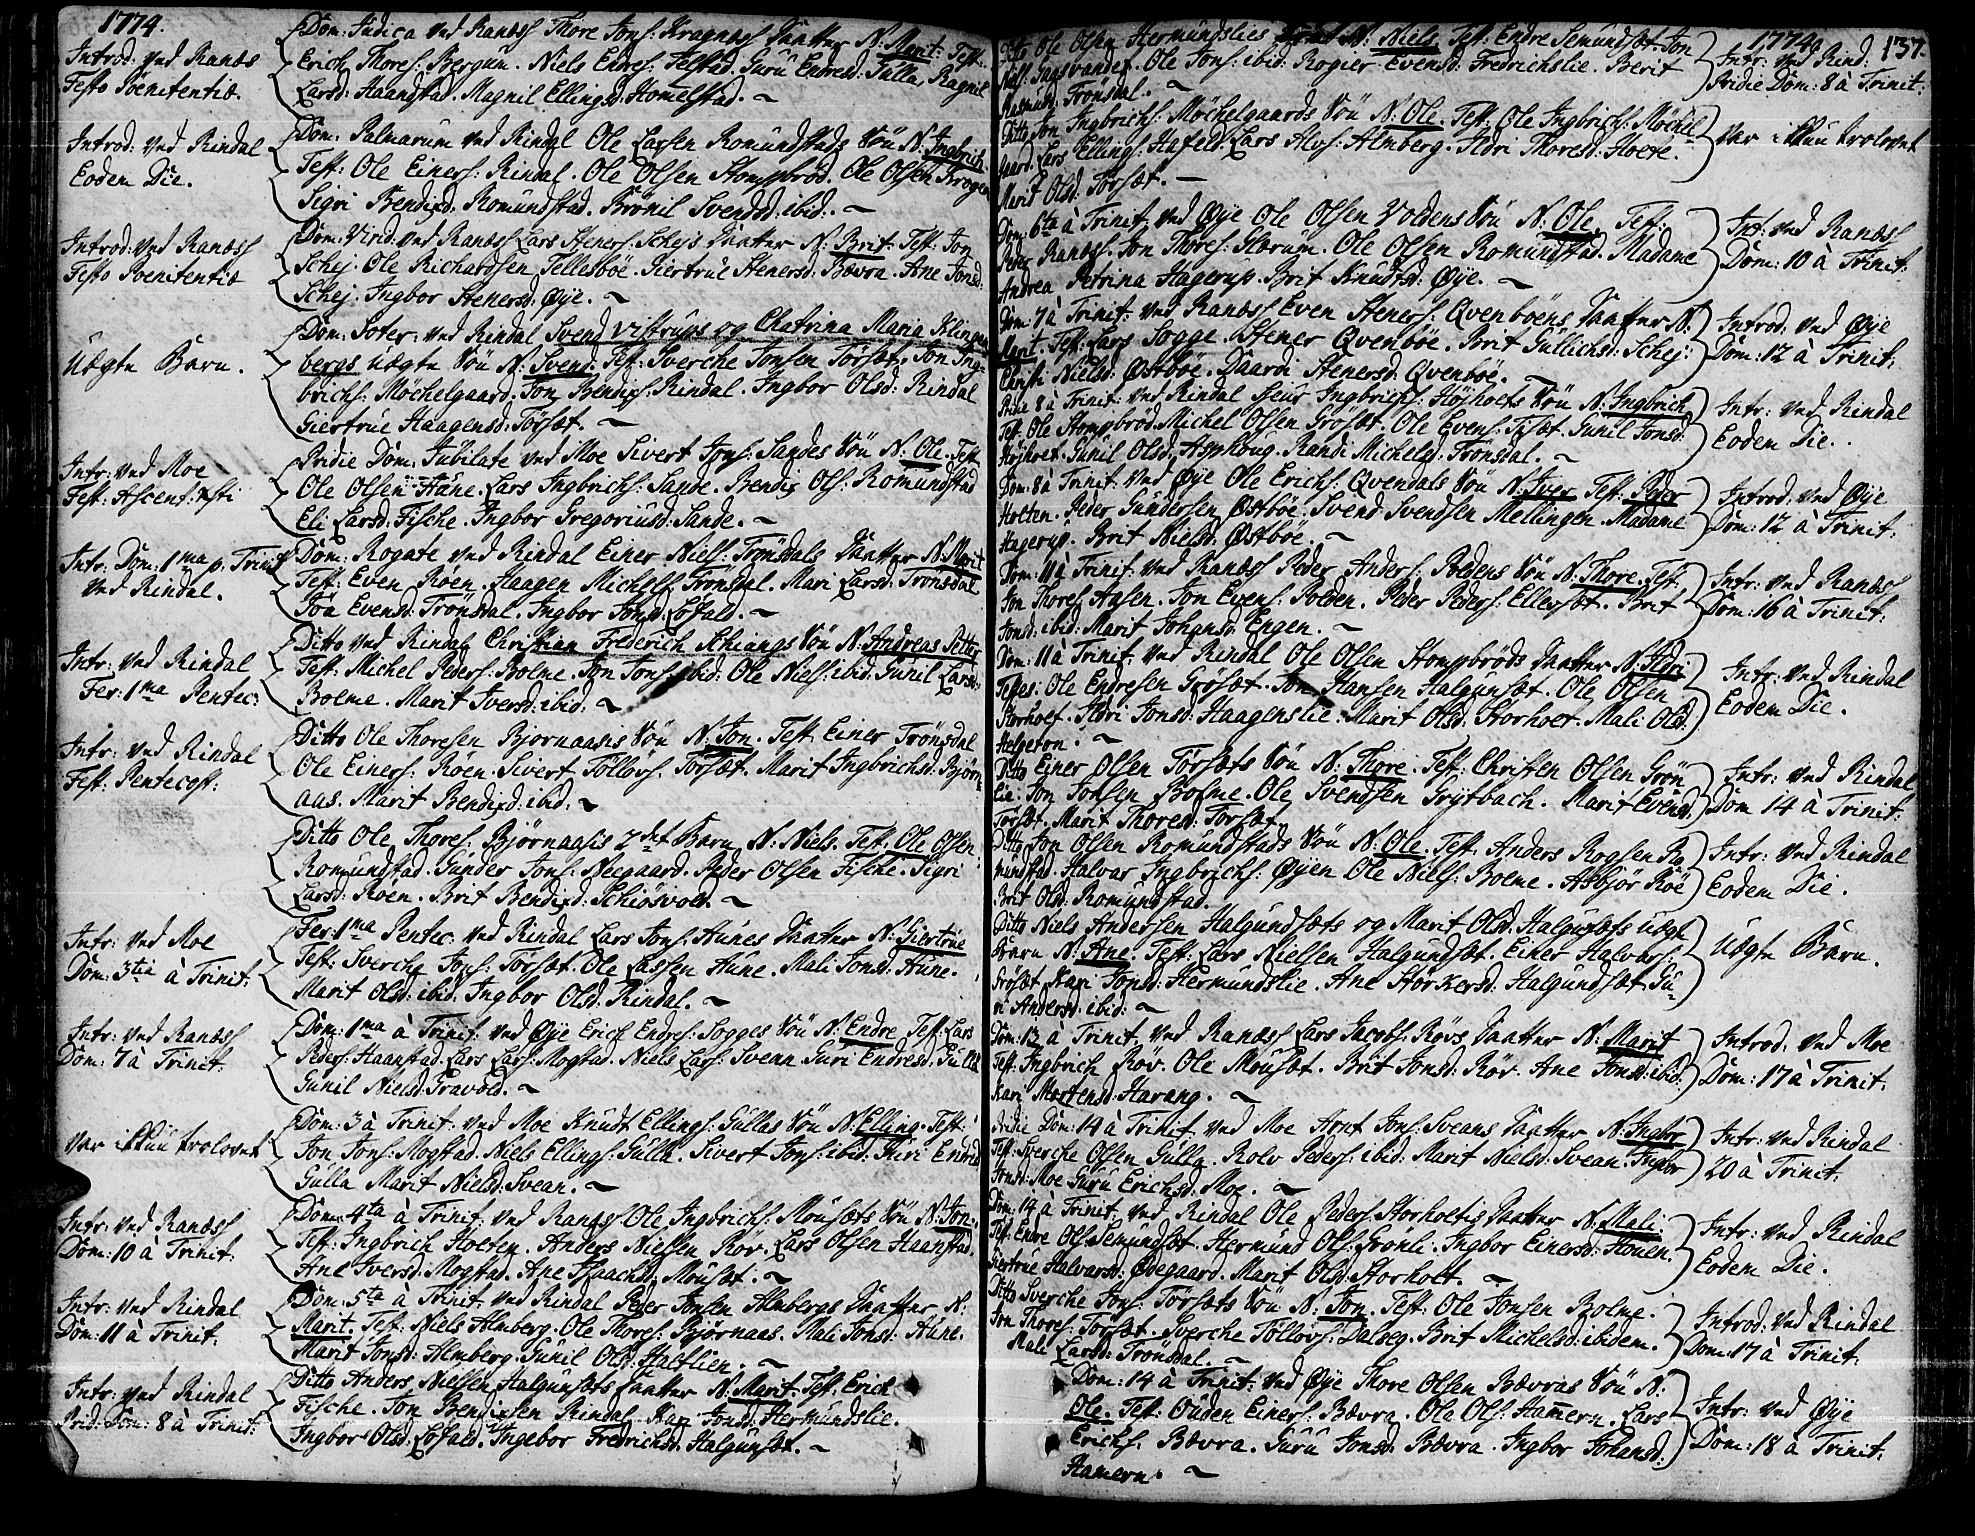 1774.
Introd: ved Ranæs
Festo Pœnitentiæ.
Dom: Judica ved Ranæss Thore Jons: Kragnæs Daatter N: Marit. Test:
Erich Thores: Bergum. Niels Endres: Telstad. Guru Endresd: Gulla, Ragnil
Larsd: Haanstad. Magnil Ellingsd: Homelstad.
Introd: ved Rindal
Eodem Die.
Dom: Palmarum ved Rindal Ole Larsen Romundstads Søn N: Ingbrich
Test: Ole Einers: Rindal. Ole Olsen Stomprød. Ole Olsen Krogen
Sigri Bendixd: Romundstad. Brønil Svendsd: ibid:
Introd: ved Ranæss
Festo Poenitentiæ
Dom: Virid: ved Ranæss Lars Steners: Schejs Daatter N: Brit. Test: Jon
Schej. Ole Richardsen Tellesbøe. Giertrue Stenersd: Bævra. Ane Jonsd:
Schej. Ingbor Stenersd: Øye.
Uægte Barn.
Dom: Soter: ved Rindal Svend Vistrups og Chatrina Maria Klingen
bergs uægte Søn N: Svend. Test: Sverche Jonsen Törsæt. Jon Ing-
brichs: Möchelgaard. Jon Bendixs: Rindal. Ingbor Olsd: Rindal
Giertrue Haagensd: Törsæt.
Intr: ved Moe
Fest: Ascens: xsti
Pridie Dom: Jubilate ved Moe Sivert Jons: Sandes Søn N: Ole. Test
Ole Olsen Hüne. Lars Ingbrichs: Sande. Bendix Ols: Romundstad
Eli Larsd: Fische. Ingbor Gregoriusd: Sande.
Intr: Dom: 1ma p. Trinit
ved Rindal.
Dom: Rogate ved Rindal Einer Niels: Trönsdals Daatter N: Marit
Test: Even Röen. Haagen Michels: Trönsdal. Mari Larsd: Trönsdal
Joa Evensd: Trönsdal. Ingbor Jonsd: Löfald.
Intr: ved Rindal
Fer: 1ma Pentec:
Ditto ved Rindal Christian Frederich Schiangs Søn N: Andreas Petter
Test: Michel Peders: Bolme. Jon Jons: ibid: Ole Niels: ibid: Gunil Larsd:
Bolme. Marit Iversd: ibid:
Intr: ved Rindal
Fest: Pentecost:
Ditto Ole Thoresen Bjornaasis Søn N: Jon. Test: Einer Trönsdal
Ole Einers: Röen. Sivert Tøllövs: Törsæt. Marit Ingbrichsd: Björn
aas. Marit Bendixd: ibid:
Ditto Ole Thores: Björnaasis 2det Barn N: Niels. Test: Ole Olsen
Romundstad. Gunder Jons: Neegaard. Peder Olsen Fische. Sigri
Larsd: Röen. Brit Bendixd: Schiösvold.
Intr: ved Moe
Dom: 3tia à Trinit:
Fer: 1ma Pentec: ved Rindal Lars Jons: Hünes Daatter N: Giertrüe
Test: Sverche Jons: Törsæt. Ole Larsen Hüne. Mali Jonsd: Hüne.
Marit Olsd: ibid: Ingbor Olsd: Rindal.
Intr: ved Ranæss
Dom: 7 à Trinit:
Dom: 1ma à Trinit: ved Øye Erich Endres: Sogges Søn N: Endre Test: Lars
Peders: Haanstad. Lars Lars: Mogstad. Niels Lars: Svean Guri Endresd: Gulla
Gunil Nielsd: Gravold.
Var ikkun trolovet
Dom: 3 à Trinit: ved Moe Knudt Ellings: Gullas Søn N: Elling. Test:
Jon Jons: Mogstad. Niels Ellings: Gulla. Sivert Jons: ibid: Guri Endresd
Gulla Marit Nielsd: Svean.
Intr: ved Ranæss
Dom: 10 à Trinit:
Dom: 4ta à Trinit: ved Ranæss Ole Ingbrichs: Mousæts Søn N: Jon.
Test: Ingbrich Hoeten. Anders Nielsen Röv. Lars Olsen Haanstad.
Ane Iversd: Mogstad. Ane Isaachd: Mousæt.
Intr: ved Rindal
Dom: 11 à Trinit:
Dom: 5ta à Trinit: ved Rindal Peder Jonsen Almbergs Daatter N:
Marit. Test: Niels Almberg. Ole Thores: Björnaas. Mali Jonsd: Hüne.
Marit Jonsd: Almberg. Gunil Olsd: Halflien.
Intr: ved Rindal
Prid: Dom: 8 à Trinit:
Ditto Anders Nielsen Halgunsæts Daatter N: Marit. Test: Erich
Fische. Jon Bendixsen Rindal. Kari Jonsd: Hermundslie.
Ingbor Olsd: Löfald. Ingebor Fredrichsd: Halgunsæt.
1774. 137.
Ditto Ole Olsen Hermundslies N: Niels Test: Endre Semundsæt. Jon
Niels: Fagsvandet. Ole Jons: ibid: Rogier Evensd: Fredrichslie. Berit
Rasmusd: Tronsdal.
Intr: ved Rind:
Pridie Dom: 8 à Trinit:
Ditto Jon Ingbrichs: Möchelgaards Søn N: Ole. Test: Ole Ingbrichs: Möchel-
gaard. Lars Ellings: Hafeld. Lars Alvs: Almberg. Ildri Thoresd: Hoete.
Marit Olsd: Törsæt.
Var ikkun trolovet
Dom: 6ta à Trinit: ved Øye Ole Olsen Voldens Søn N: Ole. Test:
Peder Ranæss. Jon Thores: Glærum. Ole Olsen Romundstad. Madame
Andrea Petrina Hagerup. Brit Knudtsd: Øye.
Intr: ved Ranæss
Dom: 10 à Trinit:
Dom: 7 à Trinit: ved Ranæss Even Steners: Qvenböens Daatter N:
Marit. Test: Lars Sogge. Stener Qvenböe. Brit Gullichsd: Schej:
Christi Nielsd: Østböe. Daardi Stenersd: Qvenböe.
Introd: ved Øye
Dom: 12 à Trinit:
Pridie 8 à Trinit: ved Rindal Sjeur Ingbrichs: Höjhoets Søn N: Ingbrich
Test: Ole Stomprød. Michel Olsen Gröset. Ole Evens: Tiset. Gunil Jonsd:
Höjhoet. Gunil Olsd: Asphoug. Randi Michelsd: Tronsdal.
Intr: ved Rindal
Eodem Die.
Dom: 8 à Trinit: ved Øye Ole Erichs: Qvendals Søn N: Iver. Test: Peder
Holten. Peder Gundersen Østböe. Svend Svendsen Mellingen. Madame
Hagerup. Brit Nielsd: Østböe.
Introd: ved Øye
Dom: 12 à Trinit:
Dom: 11 à Trinit: ved Ranæss Peder Anders: Poldens Søn N: Thore. Test:
Jon Thores: Aasen. Jon Evens: Polden. Peder Peders: Ellevsæt. Brit
Jonsd: ibid: Marit Johansd: Engen.
Intr: ved Ranæss
Dom: 16 à Trinit:
Dom: 11 à Trinit: ved Rindal Ole Olsen Stomprøds Daatter N: Ildri
Testes: Ole Endresen Gröset. Jon Hansen Halgunsæt. Ole Olsen
Storhoet. Ildri Jonsd: Haagenslie. Marit Olsd: Storhoet. Mali Olsd:
Helgeton.
Intr: ved Rindal
Eodem Die.
Ditto Einer Olsen Törsæts Søn N: Thore. Test: Christen Olsen Grön
lie. Jon Jonsen Bolme. Ole Svendsen Grytbach. Marit Evensd:
Törsæt. Marit Thoresd: Törsæt.
Intr: ved Rindal
Dom 14 à Trinit:
Ditto Jon Olsen Romundstads Søn N: Ole. Test: Anders Rogsen Ro
mundstad. Halvar Ingbrichs: Øyen Ole Niels: Bolme. Asbjör Röe
Brit Olsd: Romundstad.
Intr: ved Rindal
Eodem Die.
Ditto Niels Andersen Halgundsæts og Marit Olsd: Halgunsæts uægte
Barn N: Ane. Test: Lars Nielsen Halgundsæt. Einer Halvars:
Gröset. Kari Jonsd: Hermundslie. Ane Storkersd: Halgundsæt. Gu-
ri Andersd: ibid:
Uægte Barn.
Dom: 13 à Trinit: ved Ranæss Lars Jacobs: Rövs Daatter N: Marit
Test: Ingbrich Röv. Ole Mousæt. Brit Jonsd: Röv. Ane Jonsd: ibid:
Kari Mortensd: Harang.
Introd: ved Moe
Dom: 17 à Trinit.
Pridie Dom: 14 à Trinit ved Moe Arnt Jons: Sveans Daatter N: Ingbor
Test: Sverche Olsen Gulla. Rolv Peders: ibid: Marit Nielsd: Svean. Ingbor
Jonsd: Moe Guru Erichsd: Moe.
Intr: ved Rindal
20 à Trinit:
Dom: 14 à Trinit: ved Rindal Ole Peders: Storhoetis Daatter N: Mali.
Test: Endre Ols: Semundsæt. Hermund Ols: Gronli. Ingbor Einersd: Honen.
Giertrue Halvarsd: Ødegaard. Marit Olsd: Storhoet.
Intr: ved Rindal
Eodem Die.
Ditto Sverche Jons: Törsæts Søn N: Jon. Test: Ole Jonsen Bolme.
Jon Thores: Törsæt. Sverche Tøllövs: Dalseg. Brit Michelsd: ibidem.
Mali Larsd: Trönsdal.
Introd: ved Rindal
Dom: 17 à Trinit:
Dom: 14 à Trinit: ved Øye Thore Olsen Bævras Søn N:
Ole. Test: Ouden Einers: Bævra. Ole Ols: Hamern. Lars
Erichs: Bævra. Guru Jonsd: Bævra. Ingbor Johansd:
Hamern.
Intr: ved Øye
Dom: 18 à Trinit: